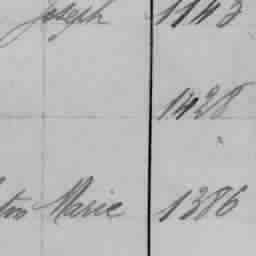 Joseph 1143
1428
Marie 1386